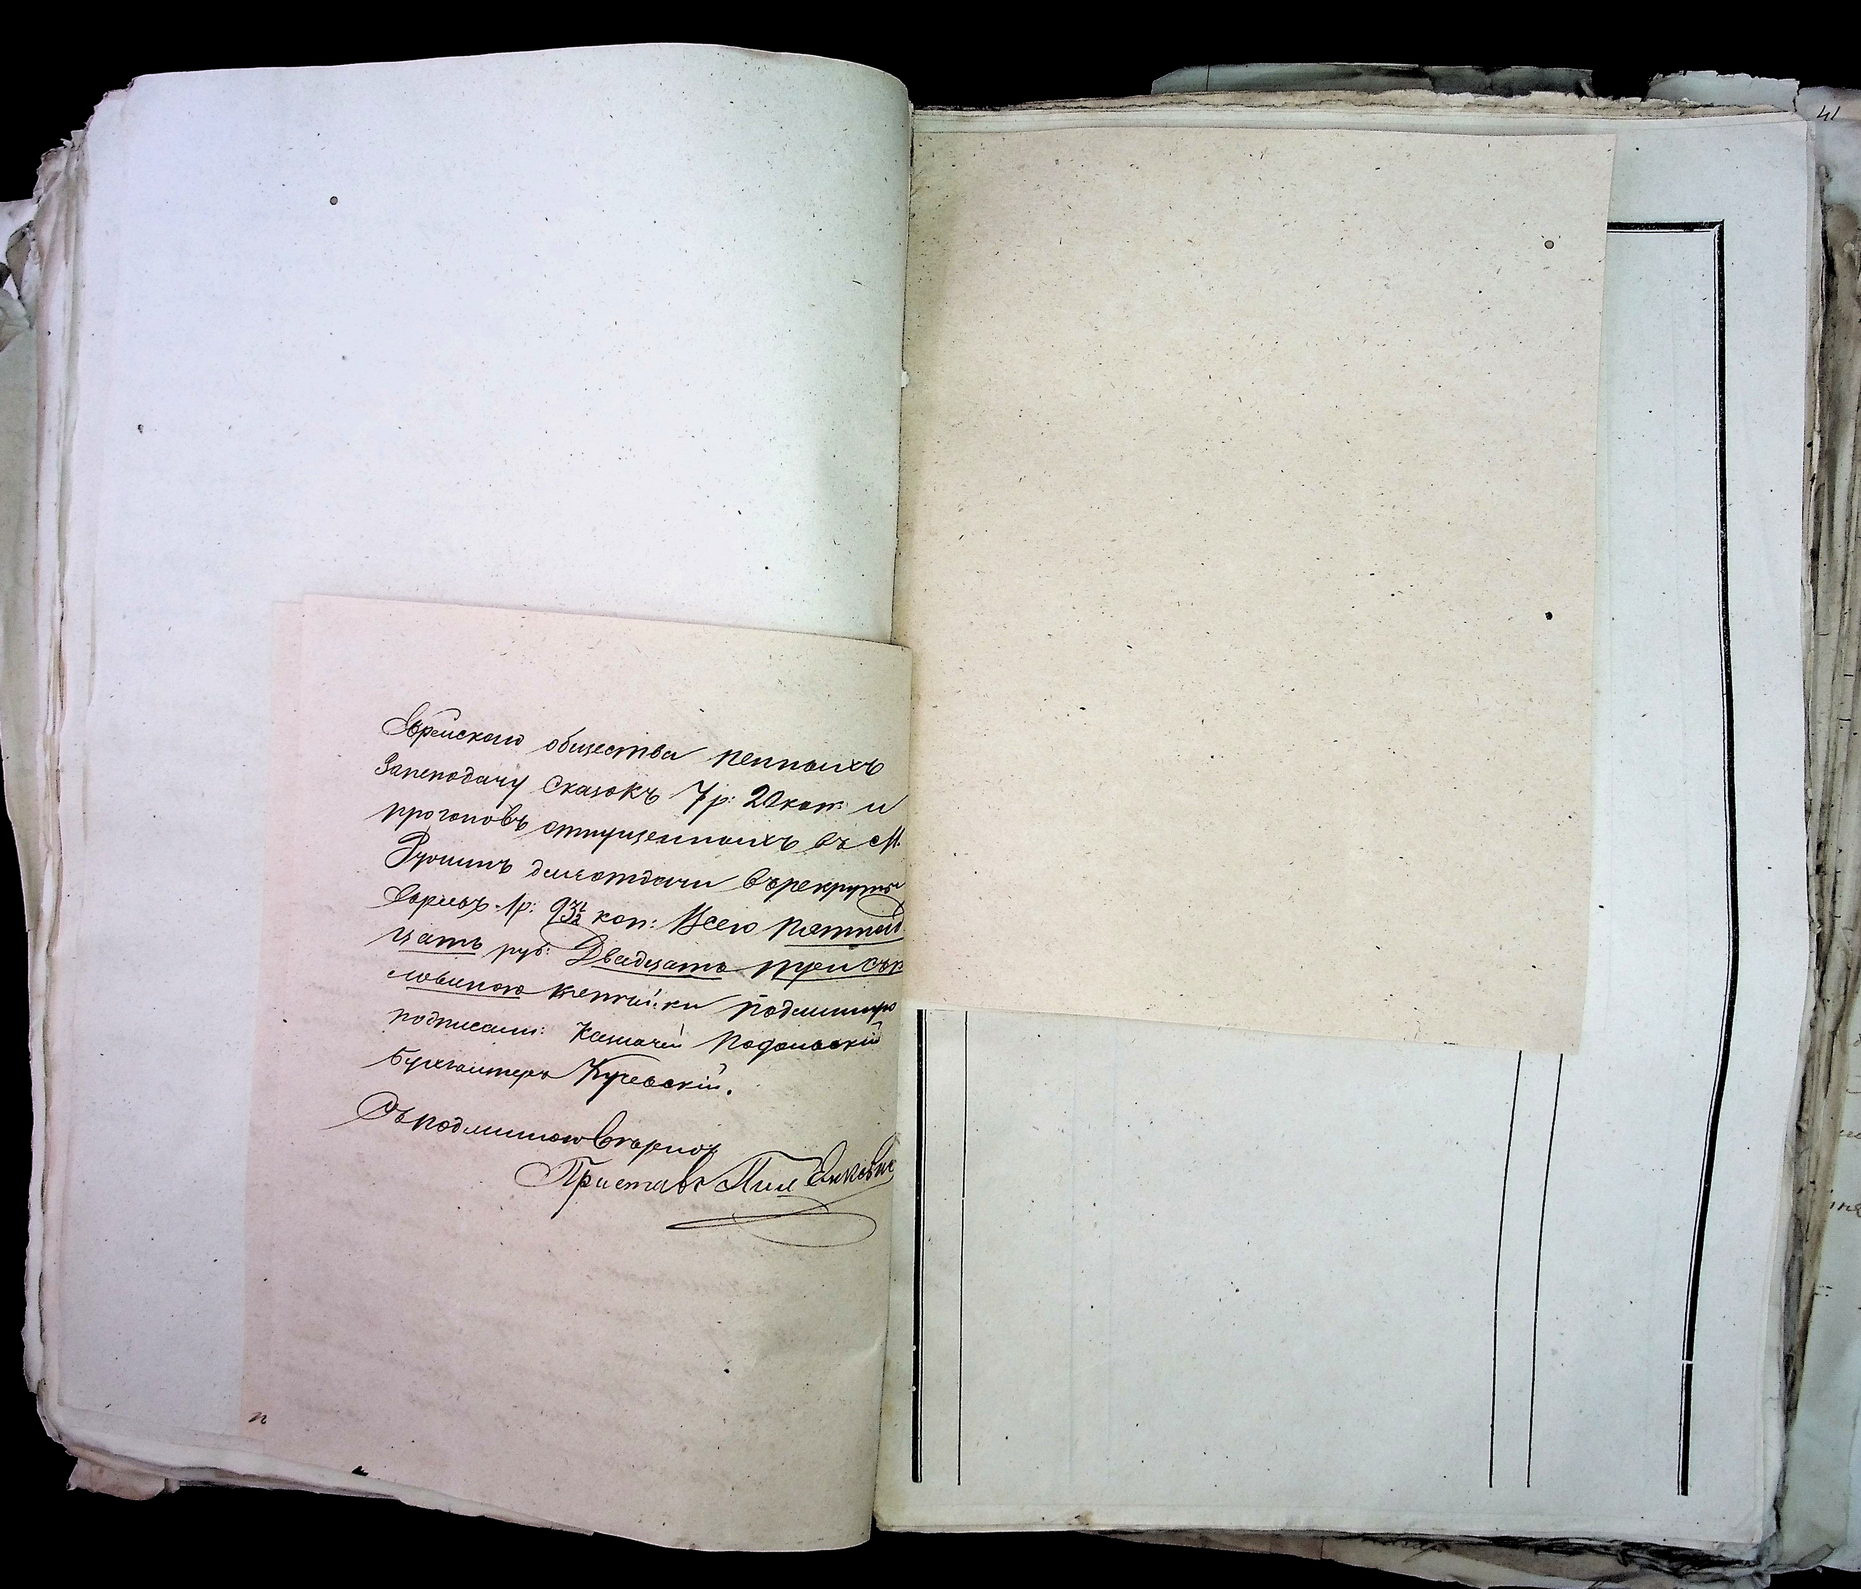 41
Еврейскаго общества пенныхъ
занеподачу сказокъ 7 р: 20 коп: и
прогоновъ отпущенныхъ въ М.
дляотдачи въ рекруты
1 р: 93½ коп: Всего пятнад
цать руб: Двадцать три съ по
ловиною копейки подлинную
подписали: Казначей Подольскій
Бухгалтеръ Кучевскій.
Съ подлинною вѣрно:
Приставъ